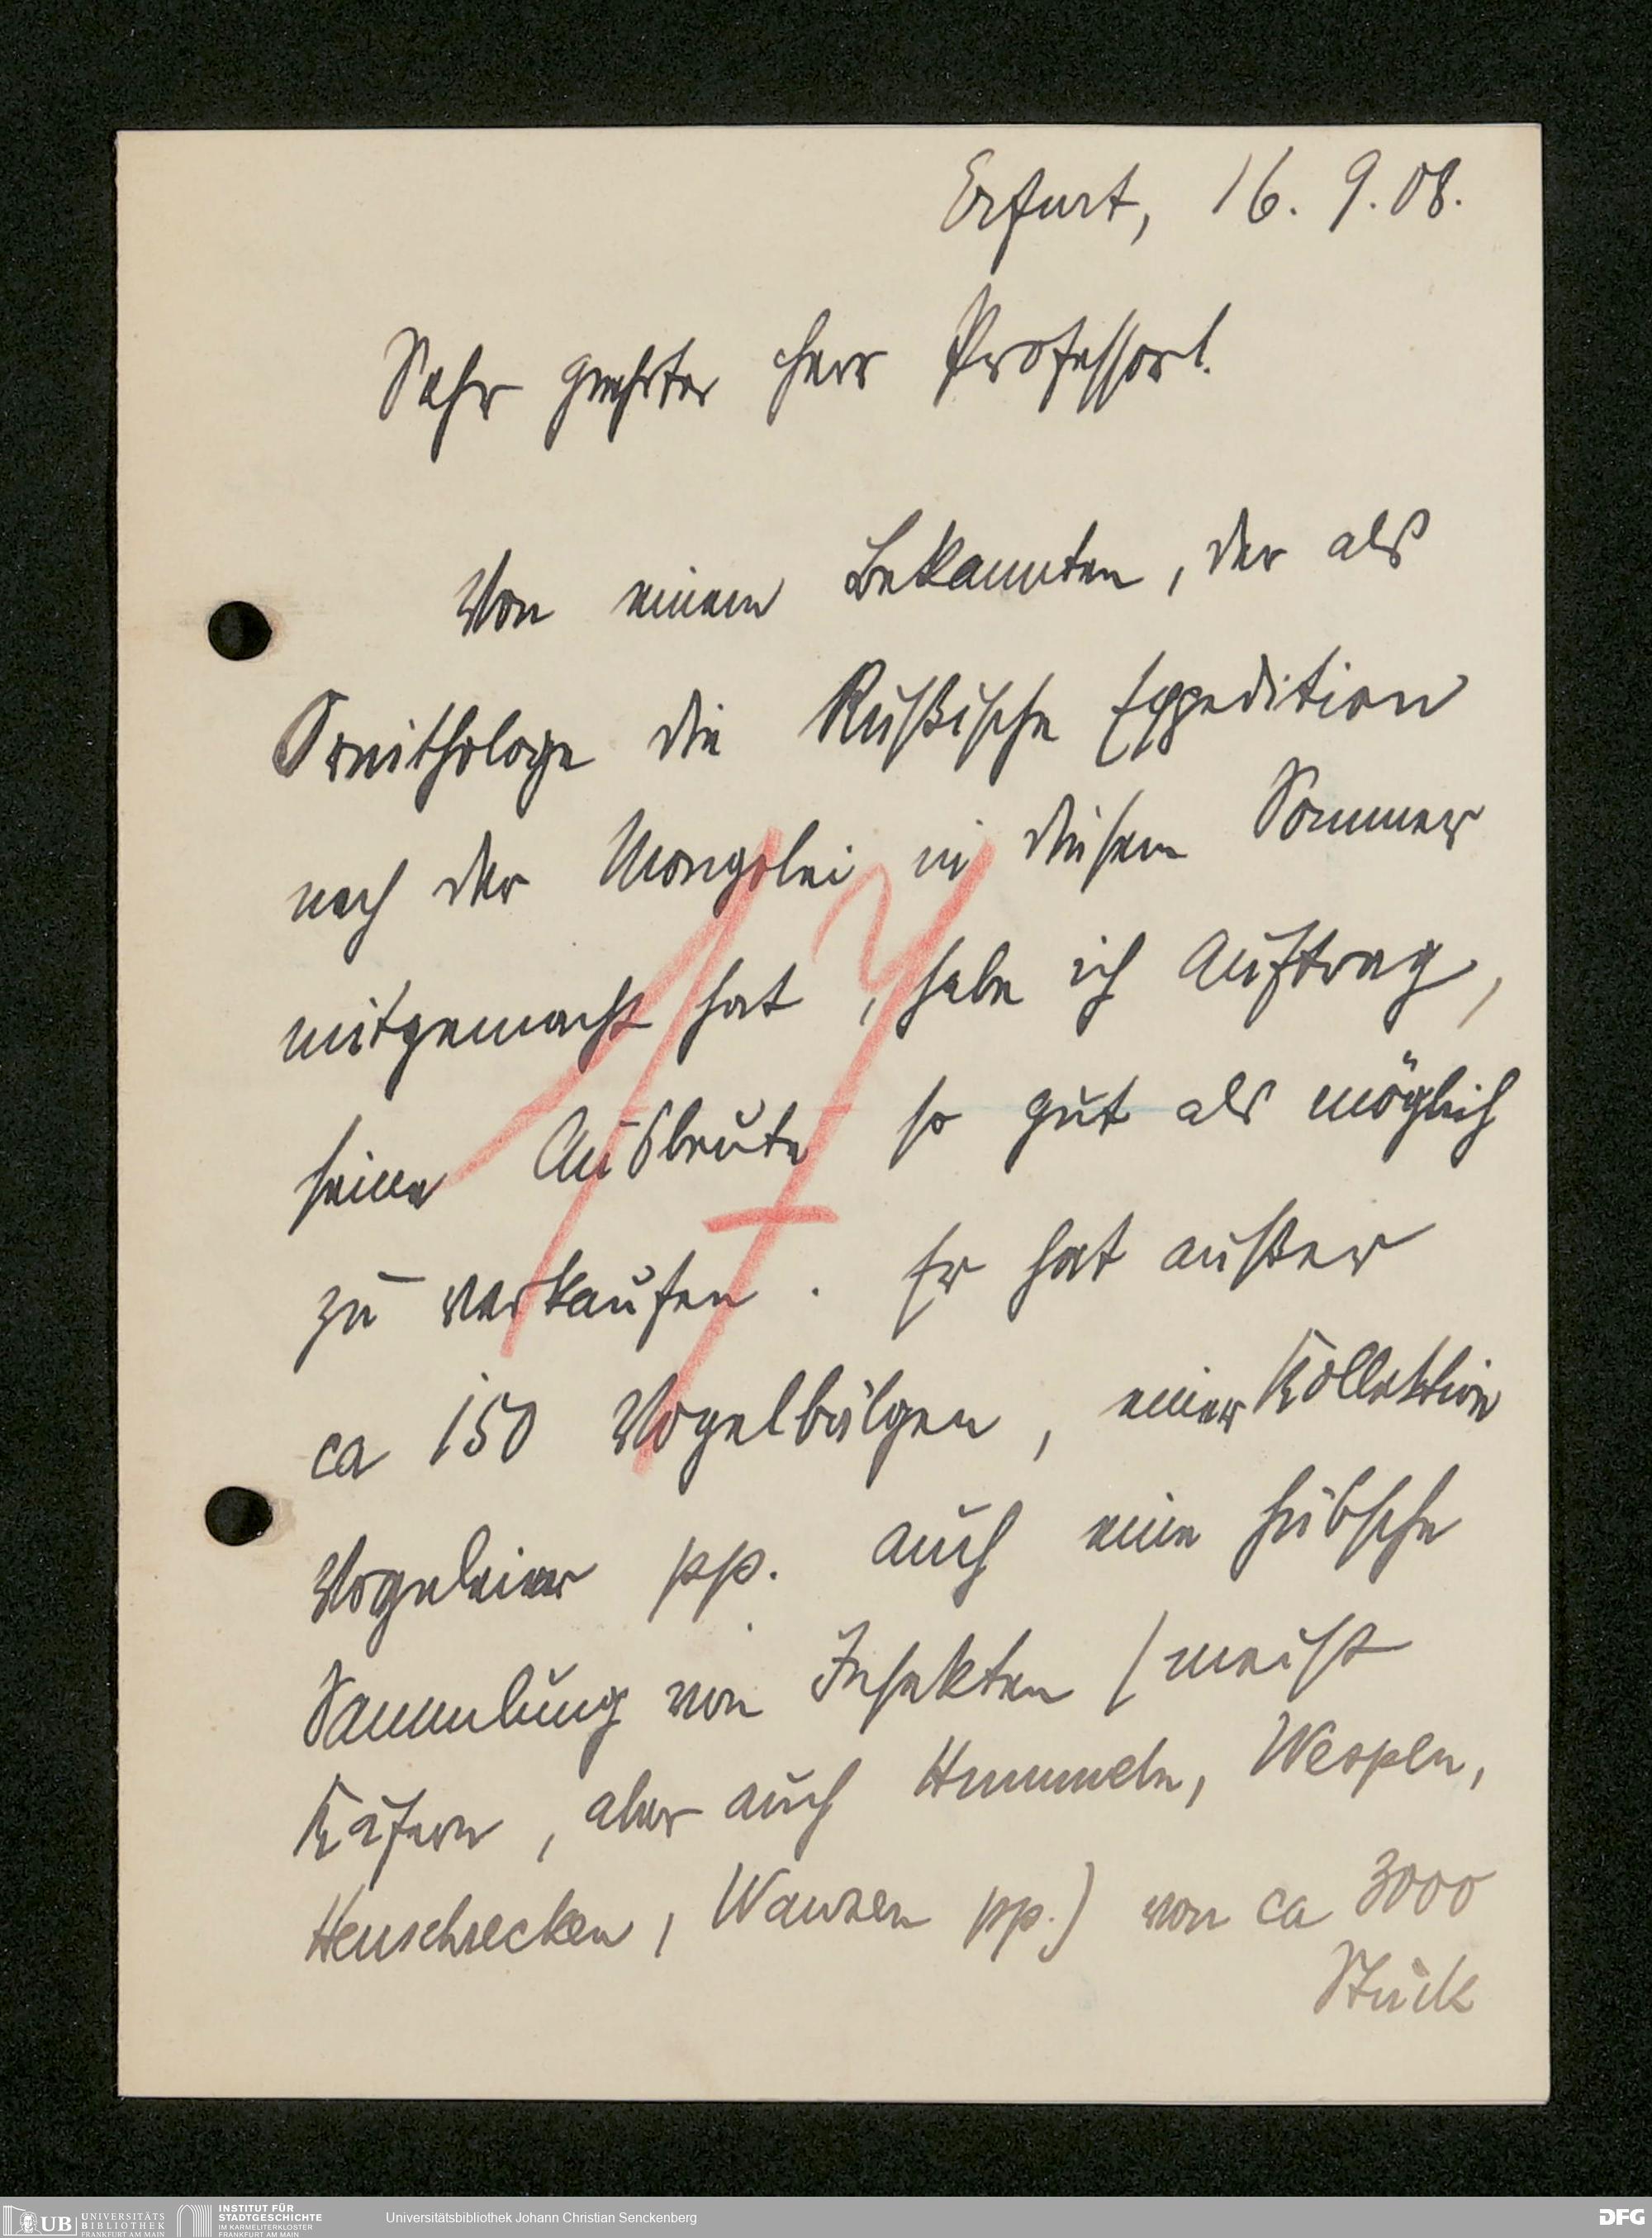 Erfurt, 16. 9. 08.
Sehr geehrter Herr Professor!
Von einem Bekannten, der als
Ornithologe die Rußische Expedition
nach der Mongolei in diesem Sommer
mitgemacht hat, habe ich Auftrag,
seine Ausbeute so gut als möglich
zu verkaufen. Er hat außer
ca 150 Vogelbälgen, einer Kollektion
Vogeleier pp. auch eine hübsche
Sammlung von Insekten (meist
Käfern, aber auch Hummeln, Wespen,
Heuschrecken, Wanzen pp.) von ca 3000
Stück
UB UNIVERSITÄTS
BIBLIOTHEK
FRANKFURT AM MAIN
INSTITUT FÜR
STADTGESCHICHTE
IM KARMELITERKLOSTER
FRANKFURT AM MAIN
Universitätsbibliothek Johann Christian Senckenberg
DFG